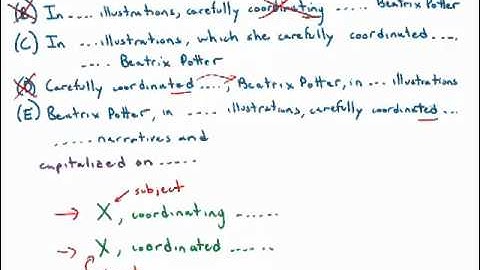 (B) In .... illustrations, carefully coordinating ..... Beatrix Potter
(C) In ....illustrations, which she carefully coordinated ....,
..... Beatrix Potter
(D) Carefully coordinated ...., Beatrix Potter, in ... illustrations
(E) Beatrix Potter, in ..... illustrations, carefully coordinated ...
..... narratives and
capitalized on .....
subject
→ X, coordinating ......
→ X, coordinated ......